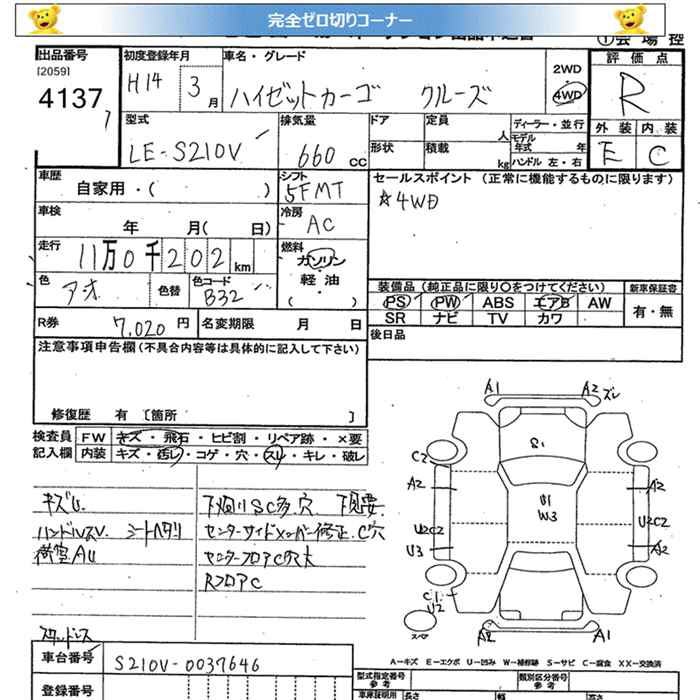 完全ゼロ切りコーナー
出品番号
[2059]
4137
初度登録年月
H14 3月
車名・グレード
ハイゼットカーゴ クルーズ
2WD
4WD
評価点
R
外装 内装
E C
型式
LE-S210V
排気量
660 CC
ドア
形状
定員 人
積載 kg
ディーラー・並行
モデル年式 年
ハンドル 左・右
車歴
自家用・( )
シフト
5FMT
セールスポイント (正常に機能するものに限ります)
☆4WD
車検
年 月( 日)
冷房
AC
走行
11万0千202km
燃料
ガソリン
・
軽油
( )
色
アオ
色替
色コード
B32
装備品(純正品に限り○をつけてください)
新車保証書
PS PW ABS エアB AW
SR ナビ TV カワ
有・無
R券 7,020円
名変期限 月 日
後日品
注意事項申告欄(不具合内容等は具体的に記入して下さい)
修復歴 有 〔箇所 〕
検査員
記入欄
FW キズ・飛石・ヒビ割・リペア跡・×要
内装 キズ・汚レ・コゲ・穴・スレ・キレ・破レ
キズU.
ハンドルスレ. シートヘタリ
荷室AU
下回りSC多.穴 下見要.
センターサイドメンバー修正.C穴
センターフロアC穴大
RフロアC
スタッドレス
車台番号 S210V-0037646
登録番号
A1
A2ズレ
S1
C2
A2
U1
W3
A2
U2C2
U2C2
U3
A2
C1
U2
スペア
A2
A1
A-キズ E-エクボ U-凹み W-補修跡 S-サビ C-腐食 XX-交換済
型式指定番号
参考
類別区分番号
参考
車庫証明用
長さ
幅
高さ